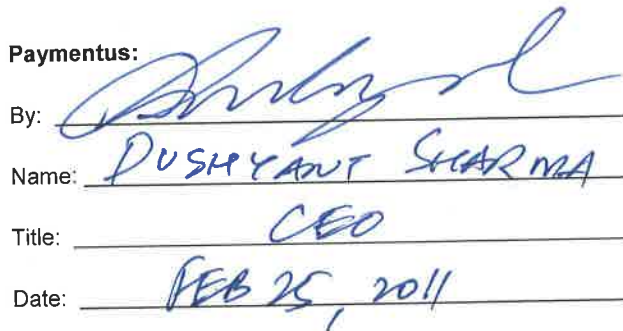 Paymentus:
By:
Name: DUSHYANT SHARMA
Title: CEO
Date: FEB 25, 2011